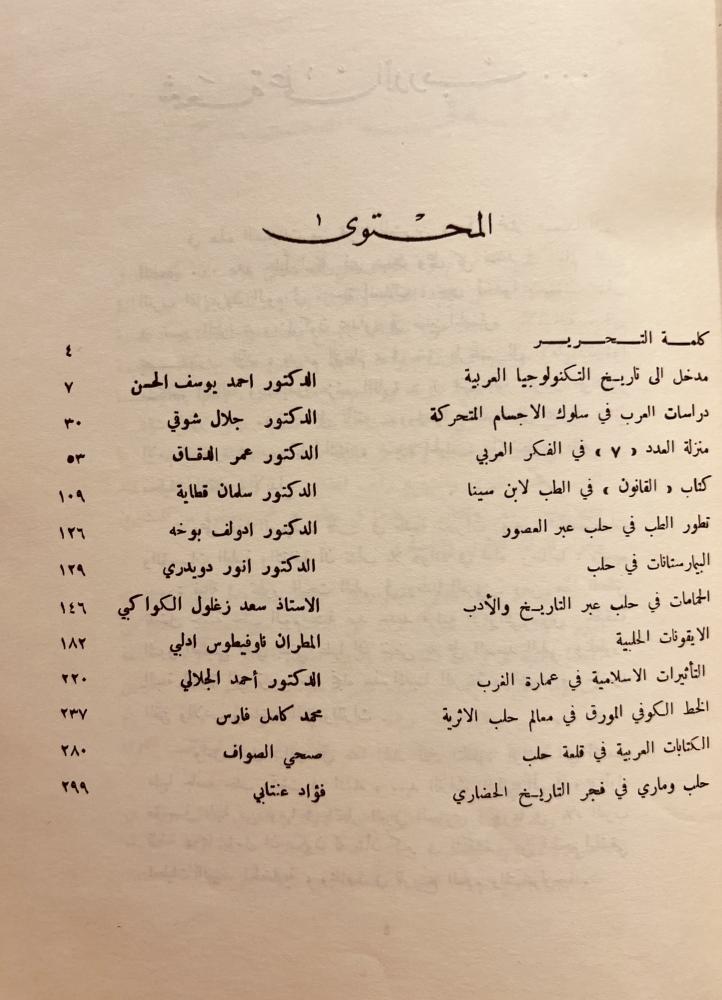 المحتوى
كلمة التحرير ٤
مدخل الى تاريخ التكنولوجيا العربية الدكتور احمد يوسف الحسن ٧
دراسات العرب في سلوك الاجسام المتحركة الدكتور جلال شوقي ٣٠
منزلة العدد « ٧ » في الفكر العربي الدكتور عمر الدقاق ٥٣
كتاب « القانون » في الطب لابن سينا الدكتور سلمان قطاية ١٠٩
تطور الطب في حلب عبر العصور الدكتور ادولف بوخه ١٢٦
البيمارستانات في حلب الدكتور انور دويدري ١٢٩
الحمامات في حلب عبر التاريخ والأدب الاستاذ سعد زغلول الكواكبي ١٤٦
الايقونات الحلبية المطران ناوفيطوس ادلبي ١٨٢
التأثيرات الاسلامية في عمارة الغرب الدكتور أحمد الجلالي ٢٢٠
الخط الكوفي المورق في معالم حلب الاثرية محمد كامل فارس ٢٣٧
الكتابات العربية في قلعة حلب صبحي الصواف ٢٨٠
حلب وماري في فجر التاريخ الحضاري فؤاد عنتابي ٢٩٩